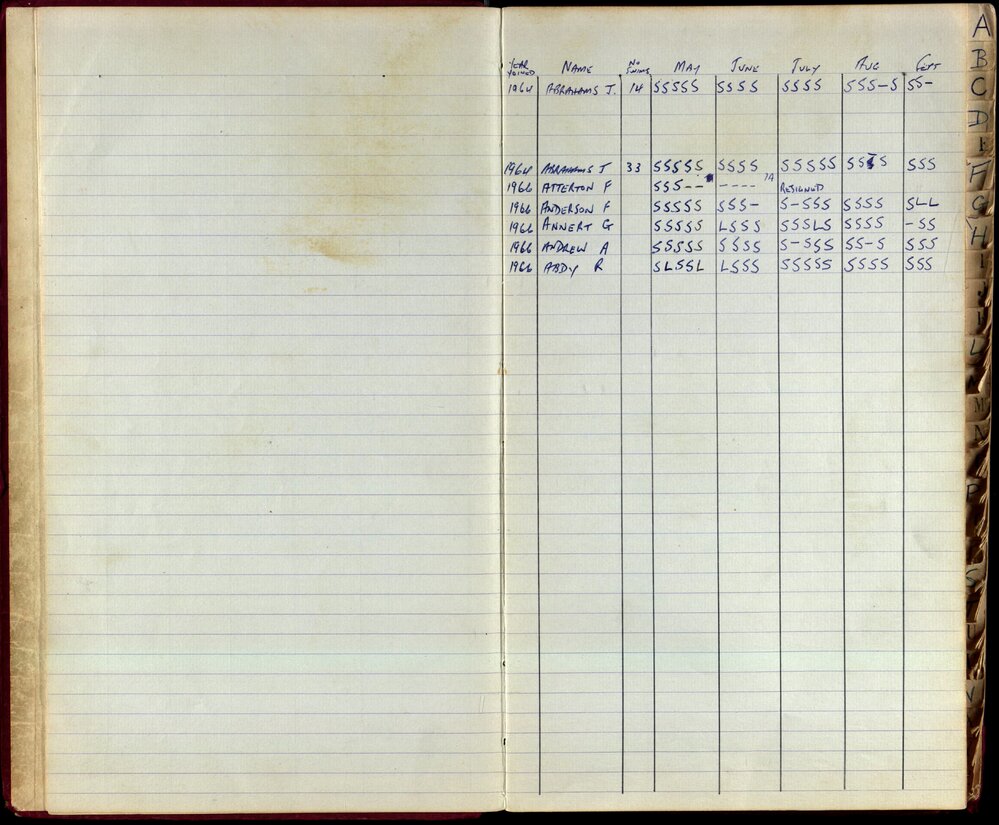 YEAR JOINED NAME NO SWIMS MAY JUNE JULY AUG SEPT
1964 ABRAHAMS J. 14 SSSSS SSSS SSSS SSS-S SS-
1964 ABRAHAMS J 33 SSSSS SSSS SSSSS SSSS SSS
1966 ATTERTON F SSS-- ---- RESIGNED
1966 ANDERSON F SSSSS SSS- S-SSS SSSS SLL
1966 ANNERT G SSSSS LSSS SSSLS SSSS -SS
1966 ANDREW A SSSSS SSSS S-SSS SS-S SSS
1966 ABDY R SLSSL LSSS SSSSS SSSS SSS
A
B
C
D
E
F
G
H
I
J
L
M
P
S
U
V